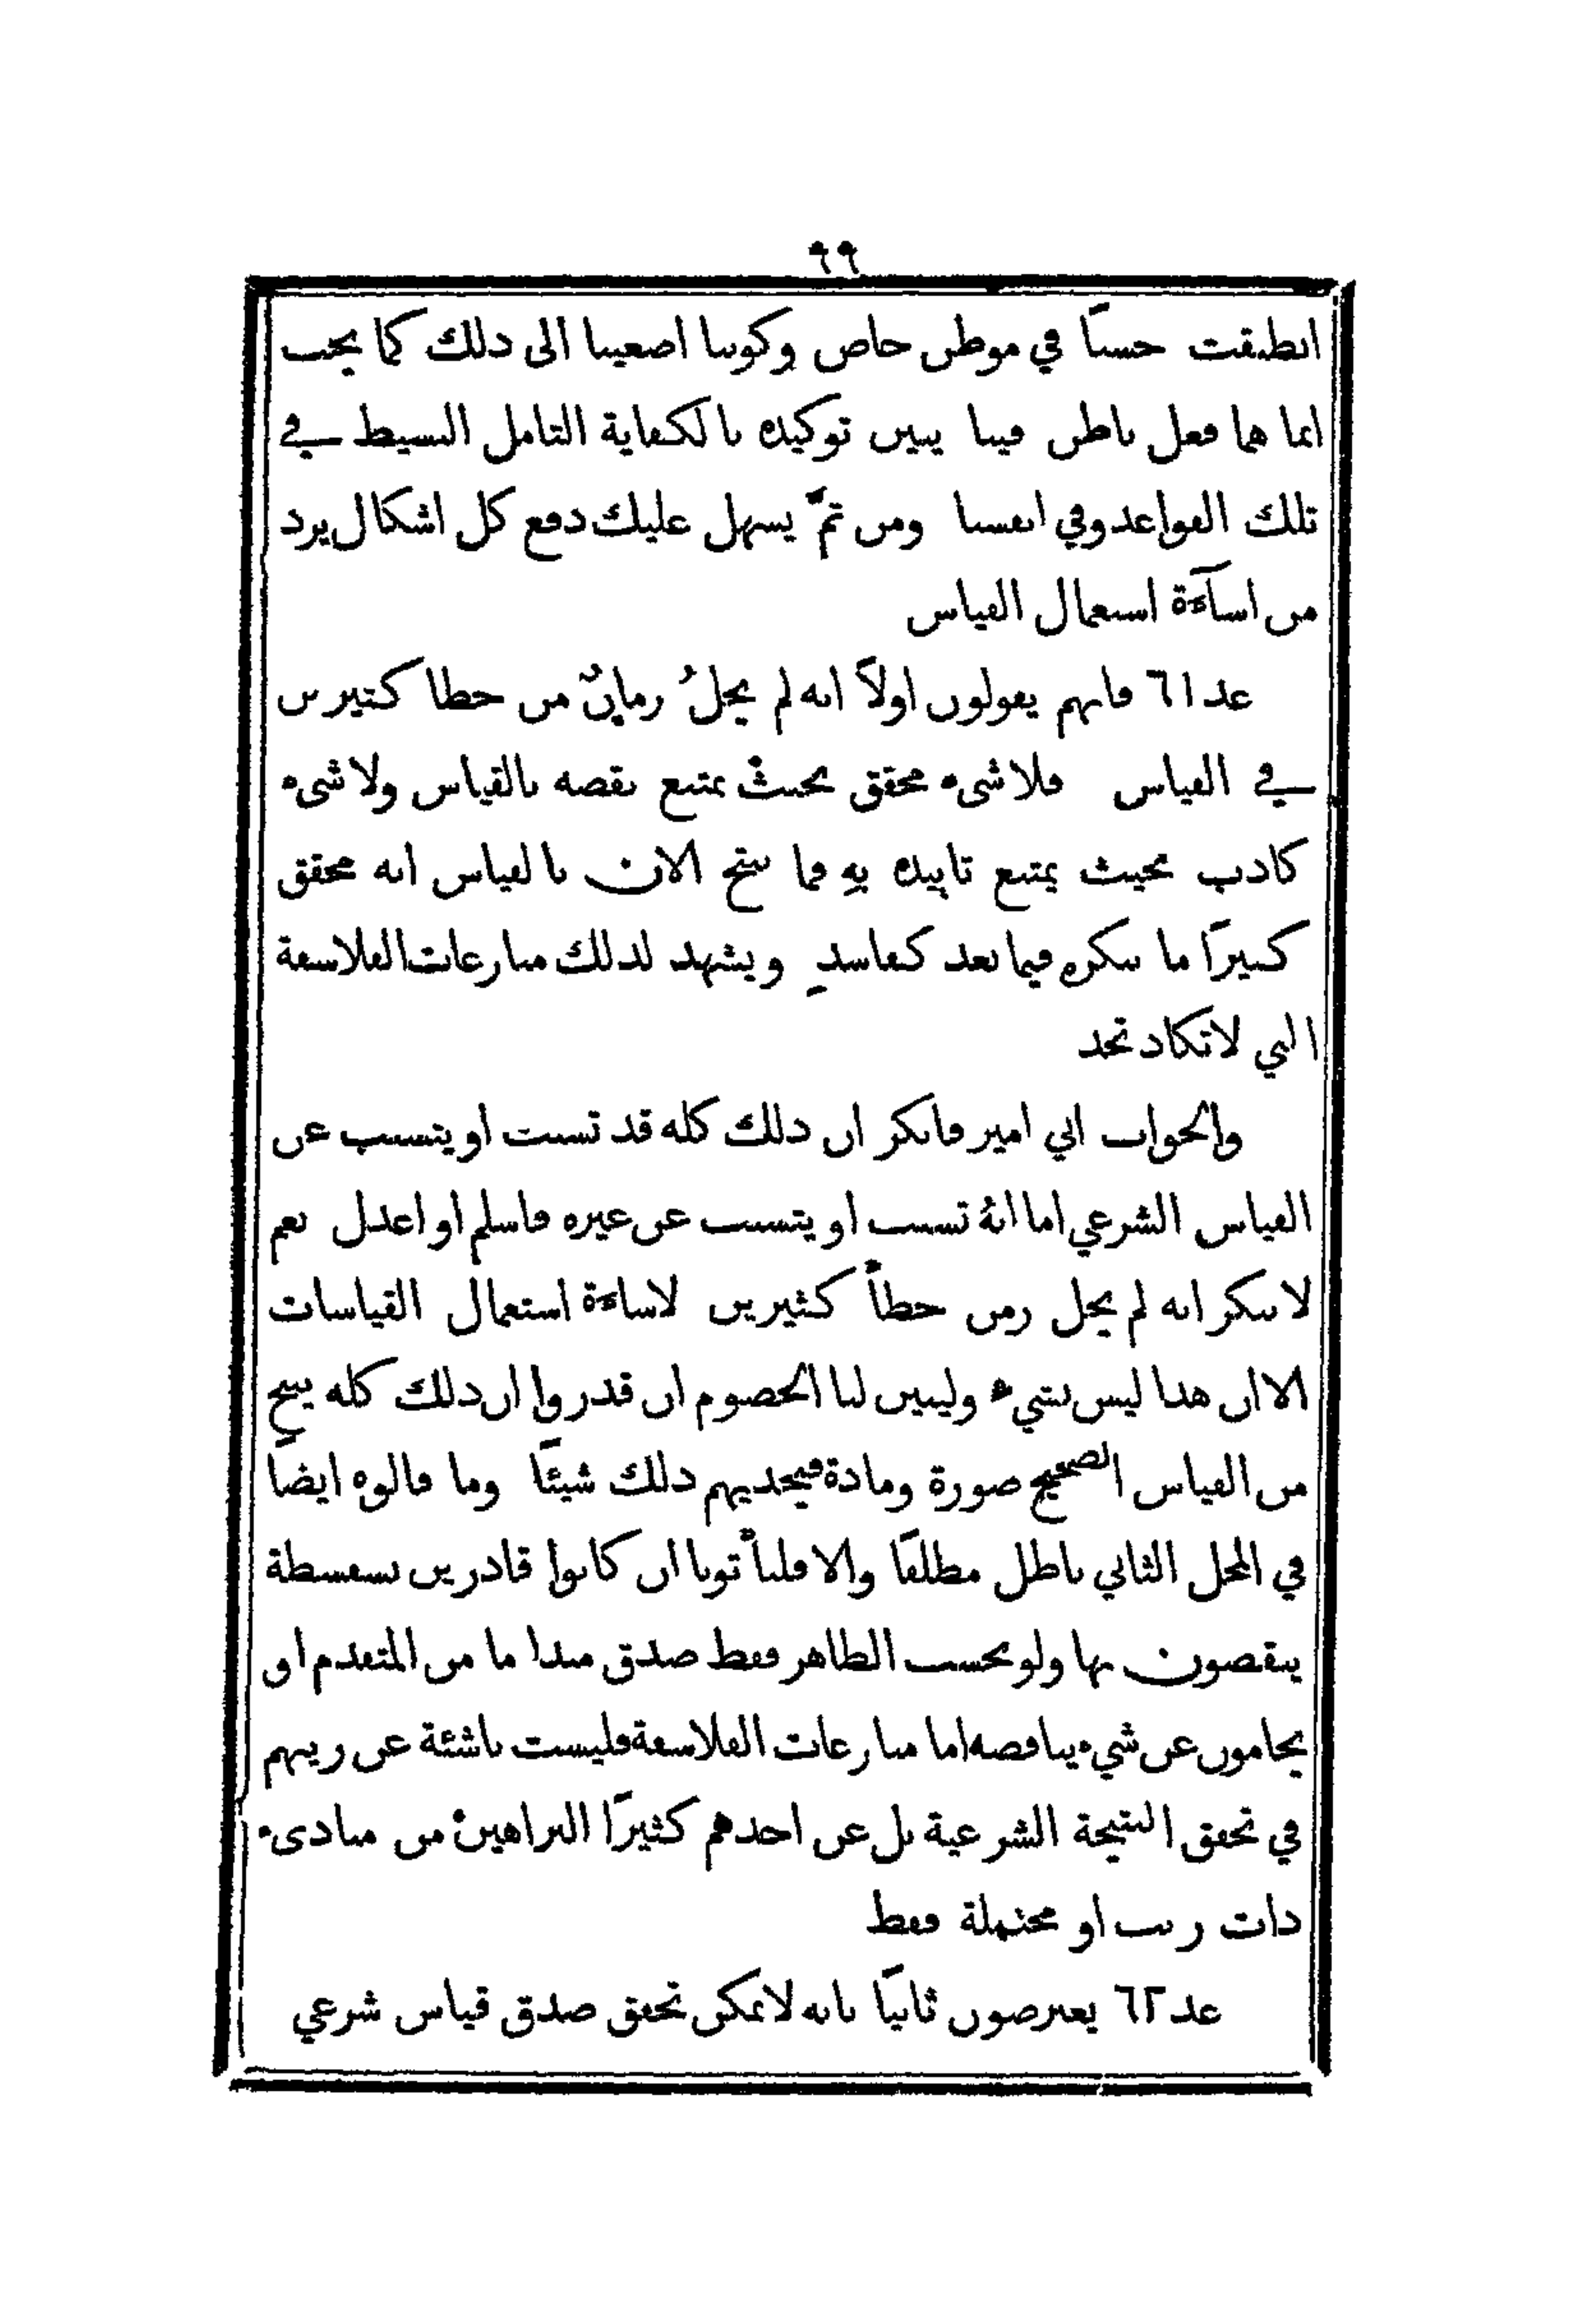 ٦٩
انطبقت حسنًا في موطن خاص وكوننا اصغينا الى ذلك كما يجب
انما هما فعل باطن فينا يبين توكيده بالكفاية التامل البسيط في
تلك القواعد وفي انفسنا ومن ثمَّ يسهل عليك دفع كل اشكال يرد
من اساءَة استعمال القياس
عد ٦١ فانهم يقولون اولاً انه لم يخلُ زمانٌ من خطا كثيرين
في القياس فلا شيء محقق بحيث يمتنع نقضه بالقياس ولا شيء
كاذب بحيث يمتنع تاييده بهِ فما ينتج الان بالقياس انه محقق
كثيرًا ما ننكره فيما بعد كفاسدٍ ويشهد لذلك منازعات الفلاسفة
التي لا تكاد تحد
والجواب اني اميز فانكر ان ذلك كله قد تسبب او يتسبب عن
القياس الشرعي اما انهُ تسبب او يتسبب عن غيره فاسلم او اعدل نعم
لا ننكر انه لم يخل زمن خطأ كثيرين لاساءة استعمال القياسات
الا ان هذا ليس بشيء وليبين لنا الخصوم ان قدروا ان ذلك كله ينتج
من القياس الصحيح صورة ومادة فيجديهم ذلك شيئًا وما قالوه ايضًا
في المحل الثاني باطل مطلقًا والا فليأتونا ان كانوا قادرين بسفسطة
ينقضون بها ولو بحسب الظاهر فقط صدق مبدا ما من المتقدم او
يحامون عن شيء يناقضه اما منازعات الفلاسفة فليست ناشئة عن ريبهم
في تحقق النتيجة الشرعية بل عن اخذهم كثيرًا البراهين من مبادىء
ذات ريب او محتملة فقط
عد ٦٢ يعترضون ثانيًا بانه لا يمكن تحقق صدق قياس شرعي